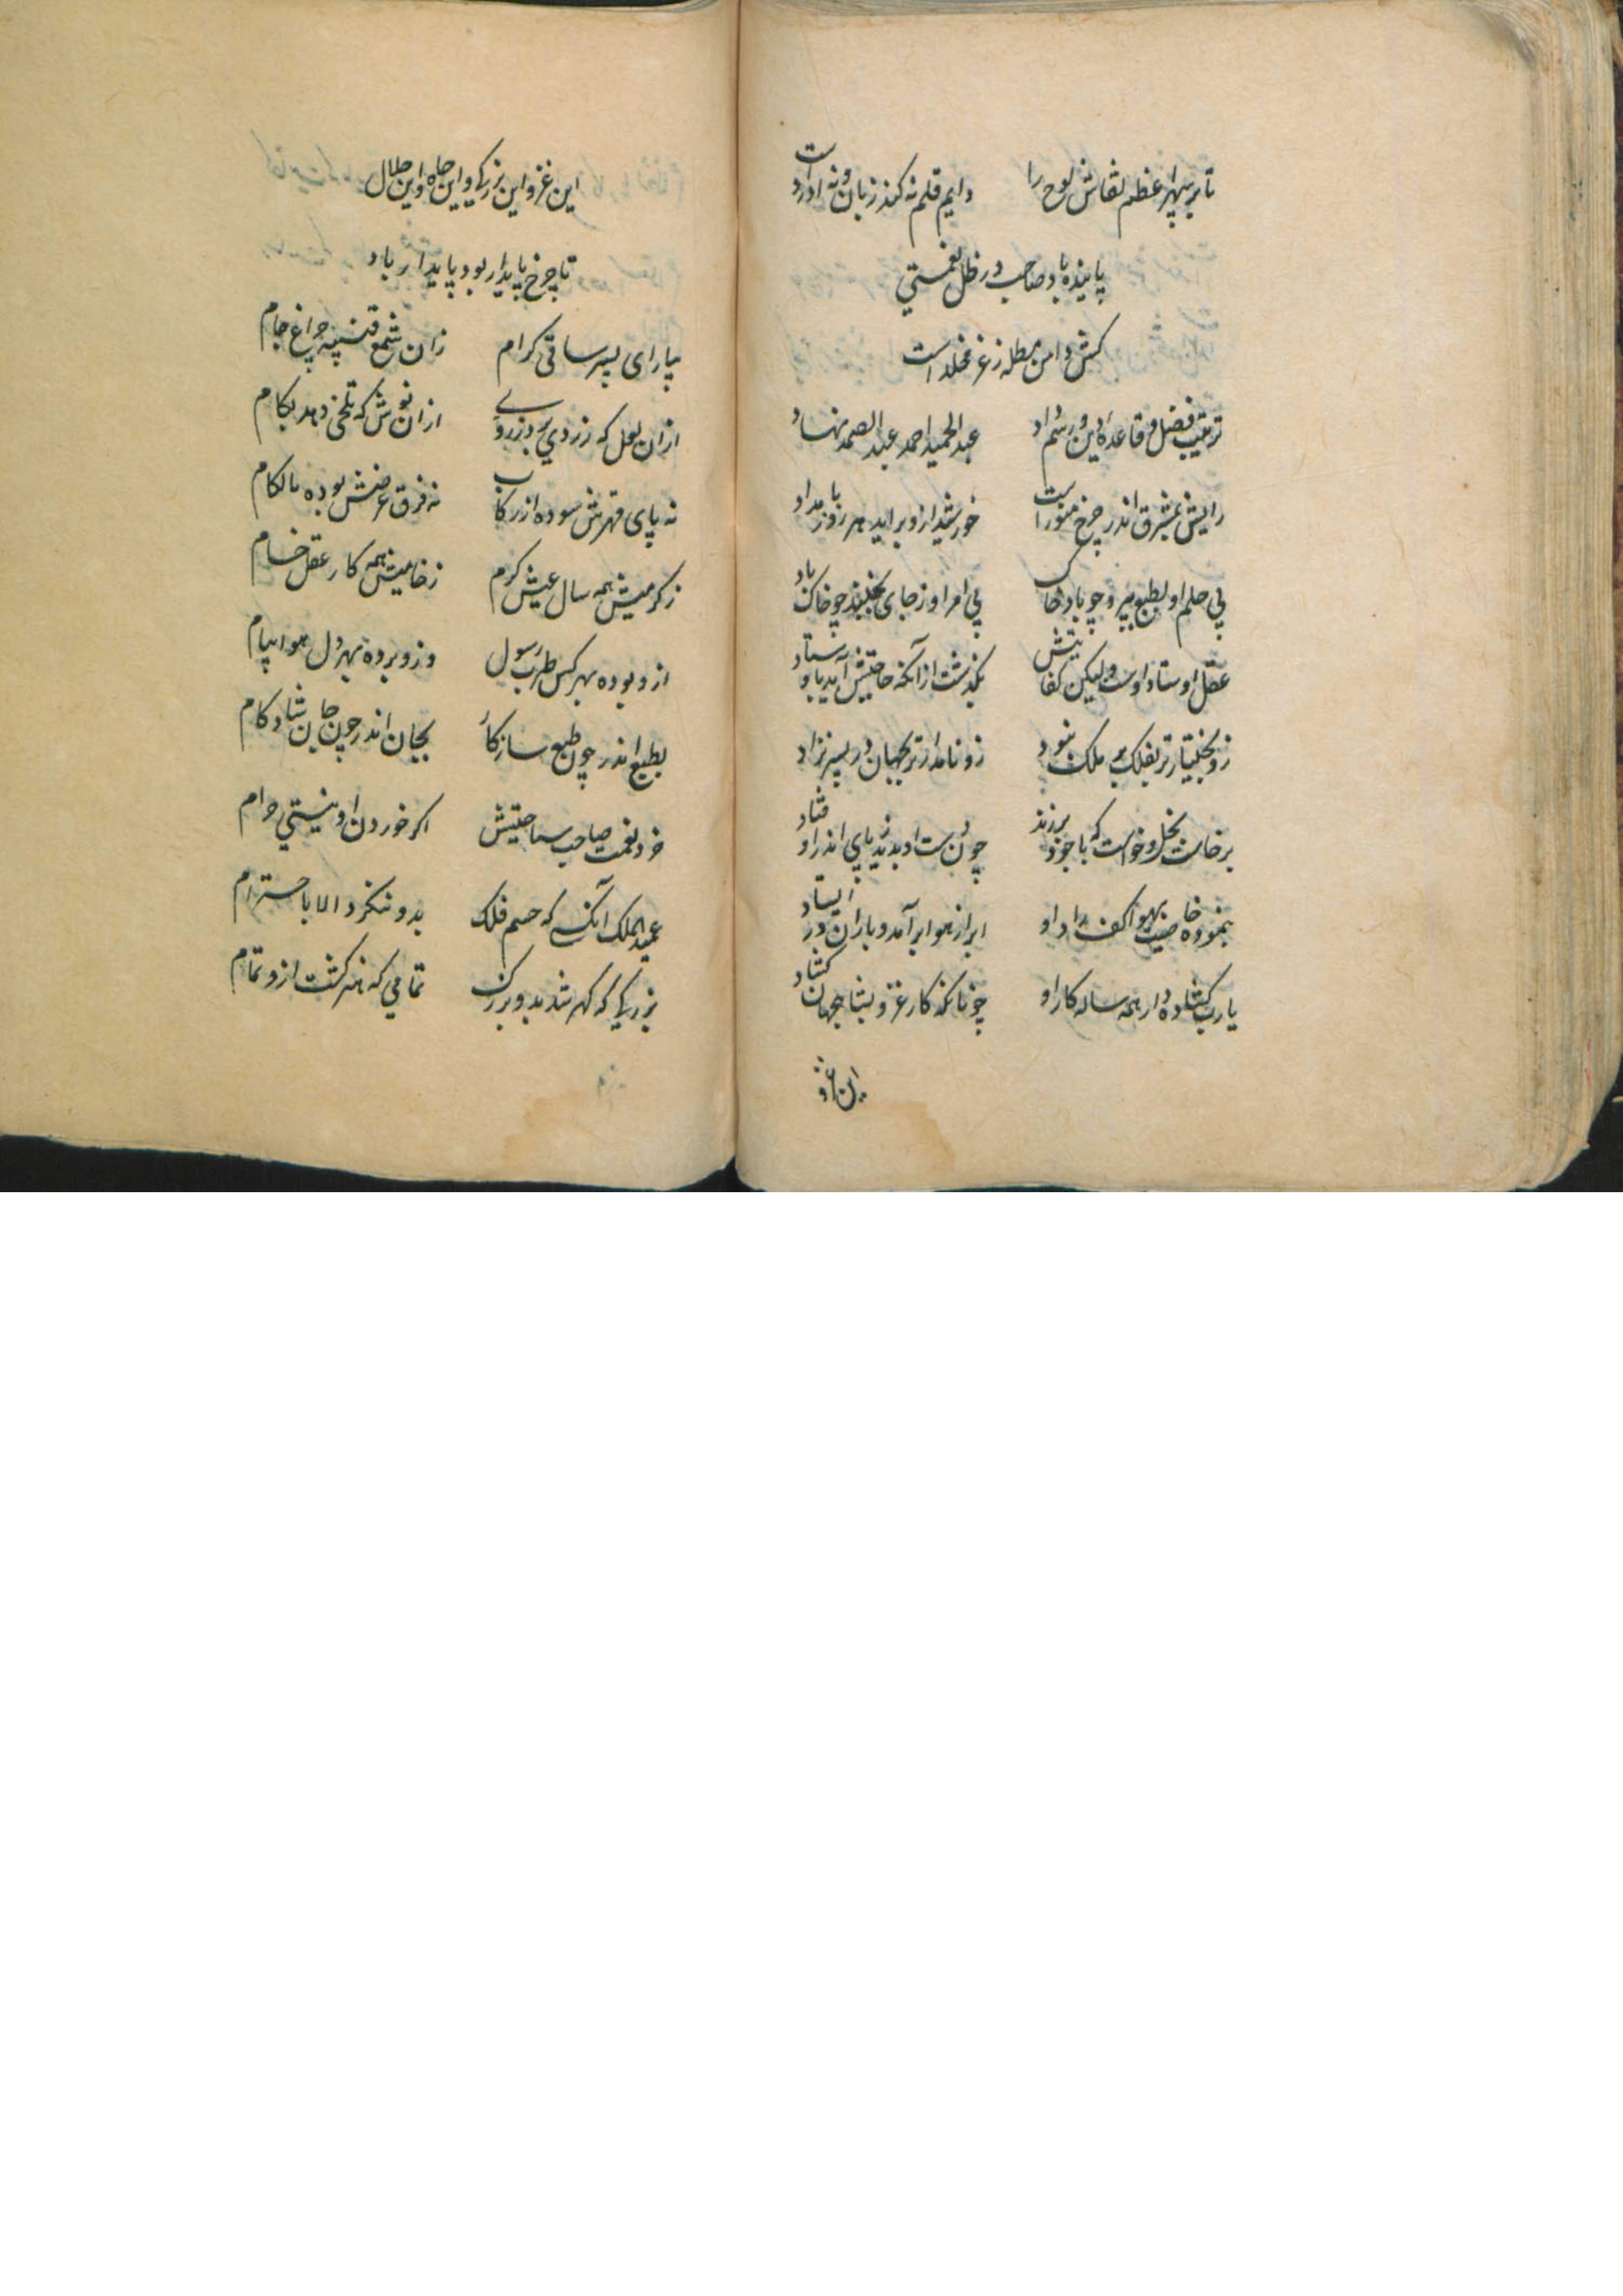 تا بر سپهر اعظم نقاش لوح را دایم قلم نه کند زبان و نه ادرد است
پاینده باد صاحب در ظل نعمتی
کش دامن مطله ز عز مخلد است
ترتیب فضل و قاعده دین و رسم داد عبدالحمید احمد عبدالصمد نهاد
رایش بمشرق اندر چرخ منور است خورشید ازو براید هر روز بامداد
پی حلم او بطبع بپرد چو باد خاک پی امر او ز جای نجنبد چو خاک باد
عقل اوستاد اوست ولیکن کفایتش بگذشت از آنکه حاجتش آید باوستاد
زو بختیارتر بفلک بر ملک نبود زو نامدارتر بجهان در پسر نزاد
برخاست بخل و خواست که با جود برزند چون دست او بدید ز پای اندر اوفتاد
بنمود خاصیت بهوا کف راد او ابر از هوا برآمد و باران در ایستاد
یارب گشاده دار همه ساله کار او چونانکه کار عز و بشا جهان گشاد
این عز و
این عز و این بزرگی و این جاه و این جلال
تا چرخ پایدار بود پایدار باد
بیار ای پسر ساقی کرام از آن شمع قنینه چراغ جام
از آن لعل که زردی برد ز روی از آن نوش که تلخی دهد بکام
نه پای قهرش سوده از رکاب نه فرق عرضش بوده با لکام
ز کرمیش همه سال عیش کرم ز خامیش همه کار عقل خام
ازو بوده بهر کس طرب رسول وزو برده بهر دل هوا پیام
بطبع اندر چون طبع سازکار بجان اندر چون جان شادکام
خرد نعمت صاحب سماحتیش اگر خوردن او نیستی حرام
عمید الملک آنکسی که جسم فلک بدو ننگرد الا باحترام
بزرگی که گهر شد بدو بزرگ تمامی که هنر گشت ازو تمام